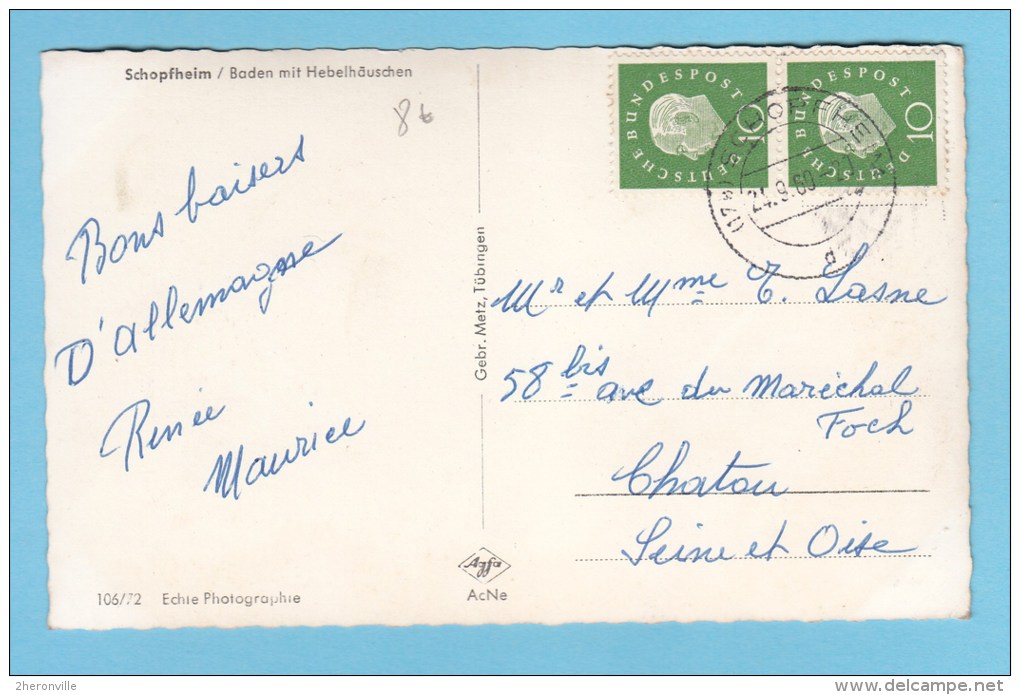 Schopfheim / Baden mit Hebelhäuschen
8
Bons baisers
D'allemagne
Renée
Maurice
Gebr. Metz, Tübingen
DEUTSCHE BUNDESPOST
10
DEUTSCHE BUNDESPOST
10
SCHOPFHEIM
24.9.60
Mr et Mme T. Lasne
58 bis ave du Maréchal
Foch
Chatou
Seine et Oise
106/72 Echte Photographie
Agfa
AcNe
2heronville
www.delcampe.net